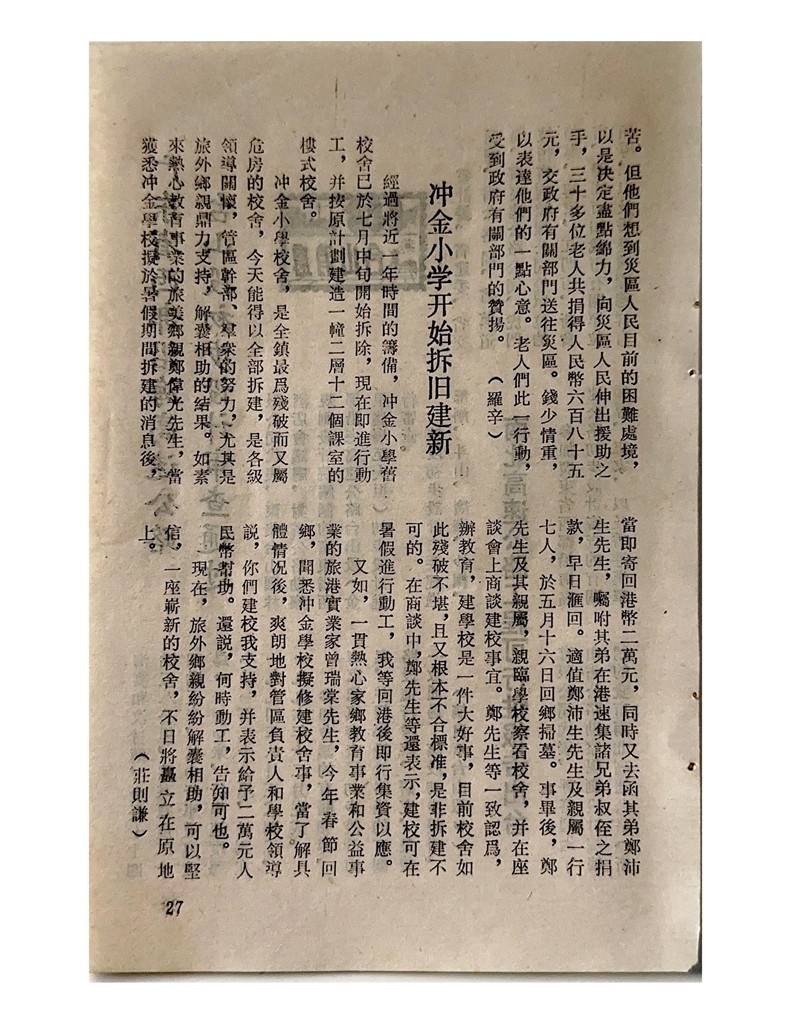 苦。但他們想到災區人民目前的困難處境，
以是决定盡點綿力，向災區人民伸出援助之
手，三十多位老人共捐得人民幣六百八十五
元，交政府有關部門送往災區。錢少情重，
以表達他們的一點心意。老人們此一行動，
受到政府有關部門的贊揚。（羅辛）
冲金小学开始拆旧建新
經過將近一年時間的籌備，冲金小學舊
校舍已於七月中旬開始拆除，現在即進行動
工，并按原計劃建造一幢二層十二個課室的
樓式校舍。
冲金小學校舍，是全鎮最爲殘破而又屬
危房的校舍，今天能得以全部拆建，是各級
領導關懷，管區幹部、羣衆的努力，尤其是
旅外鄉親鼎力支持，解囊相助的結果。如素
來熱心教育事業的旅美鄉親鄭偉光先生，當
獲悉冲金學校擬於暑假期間拆建的消息後，
當即寄回港幣二萬元，同時又去函其弟鄭沛
生先生，囑咐其弟在港速集諸兄弟叔侄之捐
款，早日滙回。適值鄭沛生先生及親屬一行
七人，於五月十六日回鄉掃墓。事畢後，鄭
先生及其親屬，親臨學校察看校舍，并在座
談會上商談建校事宜。鄭先生等一致認爲，
辦教育，建學校是一件大好事，目前校舍如
此殘破不堪，且又根本不合標准，是非拆建不
可的。在商談中，鄭先生等還表示，建校可在
暑假進行動工，我等回港後即行集資以應。
又如，一貫熱心家鄉教育事業和公益事
業的旅港實業家曾瑞棠先生，今年春節回
鄉，聞悉冲金學校擬修建校舍事，當了解具
體情况後，爽朗地對管區負責人和學校領導
説，你們建校我支持，并表示給予二萬元人
民幣幫助。還説，何時動工，告知可也。
現在，旅外鄉親紛紛解囊相助，可以堅
信，一座嶄新的校舍，不日將矗立在原地
上。
（莊則謙）
27